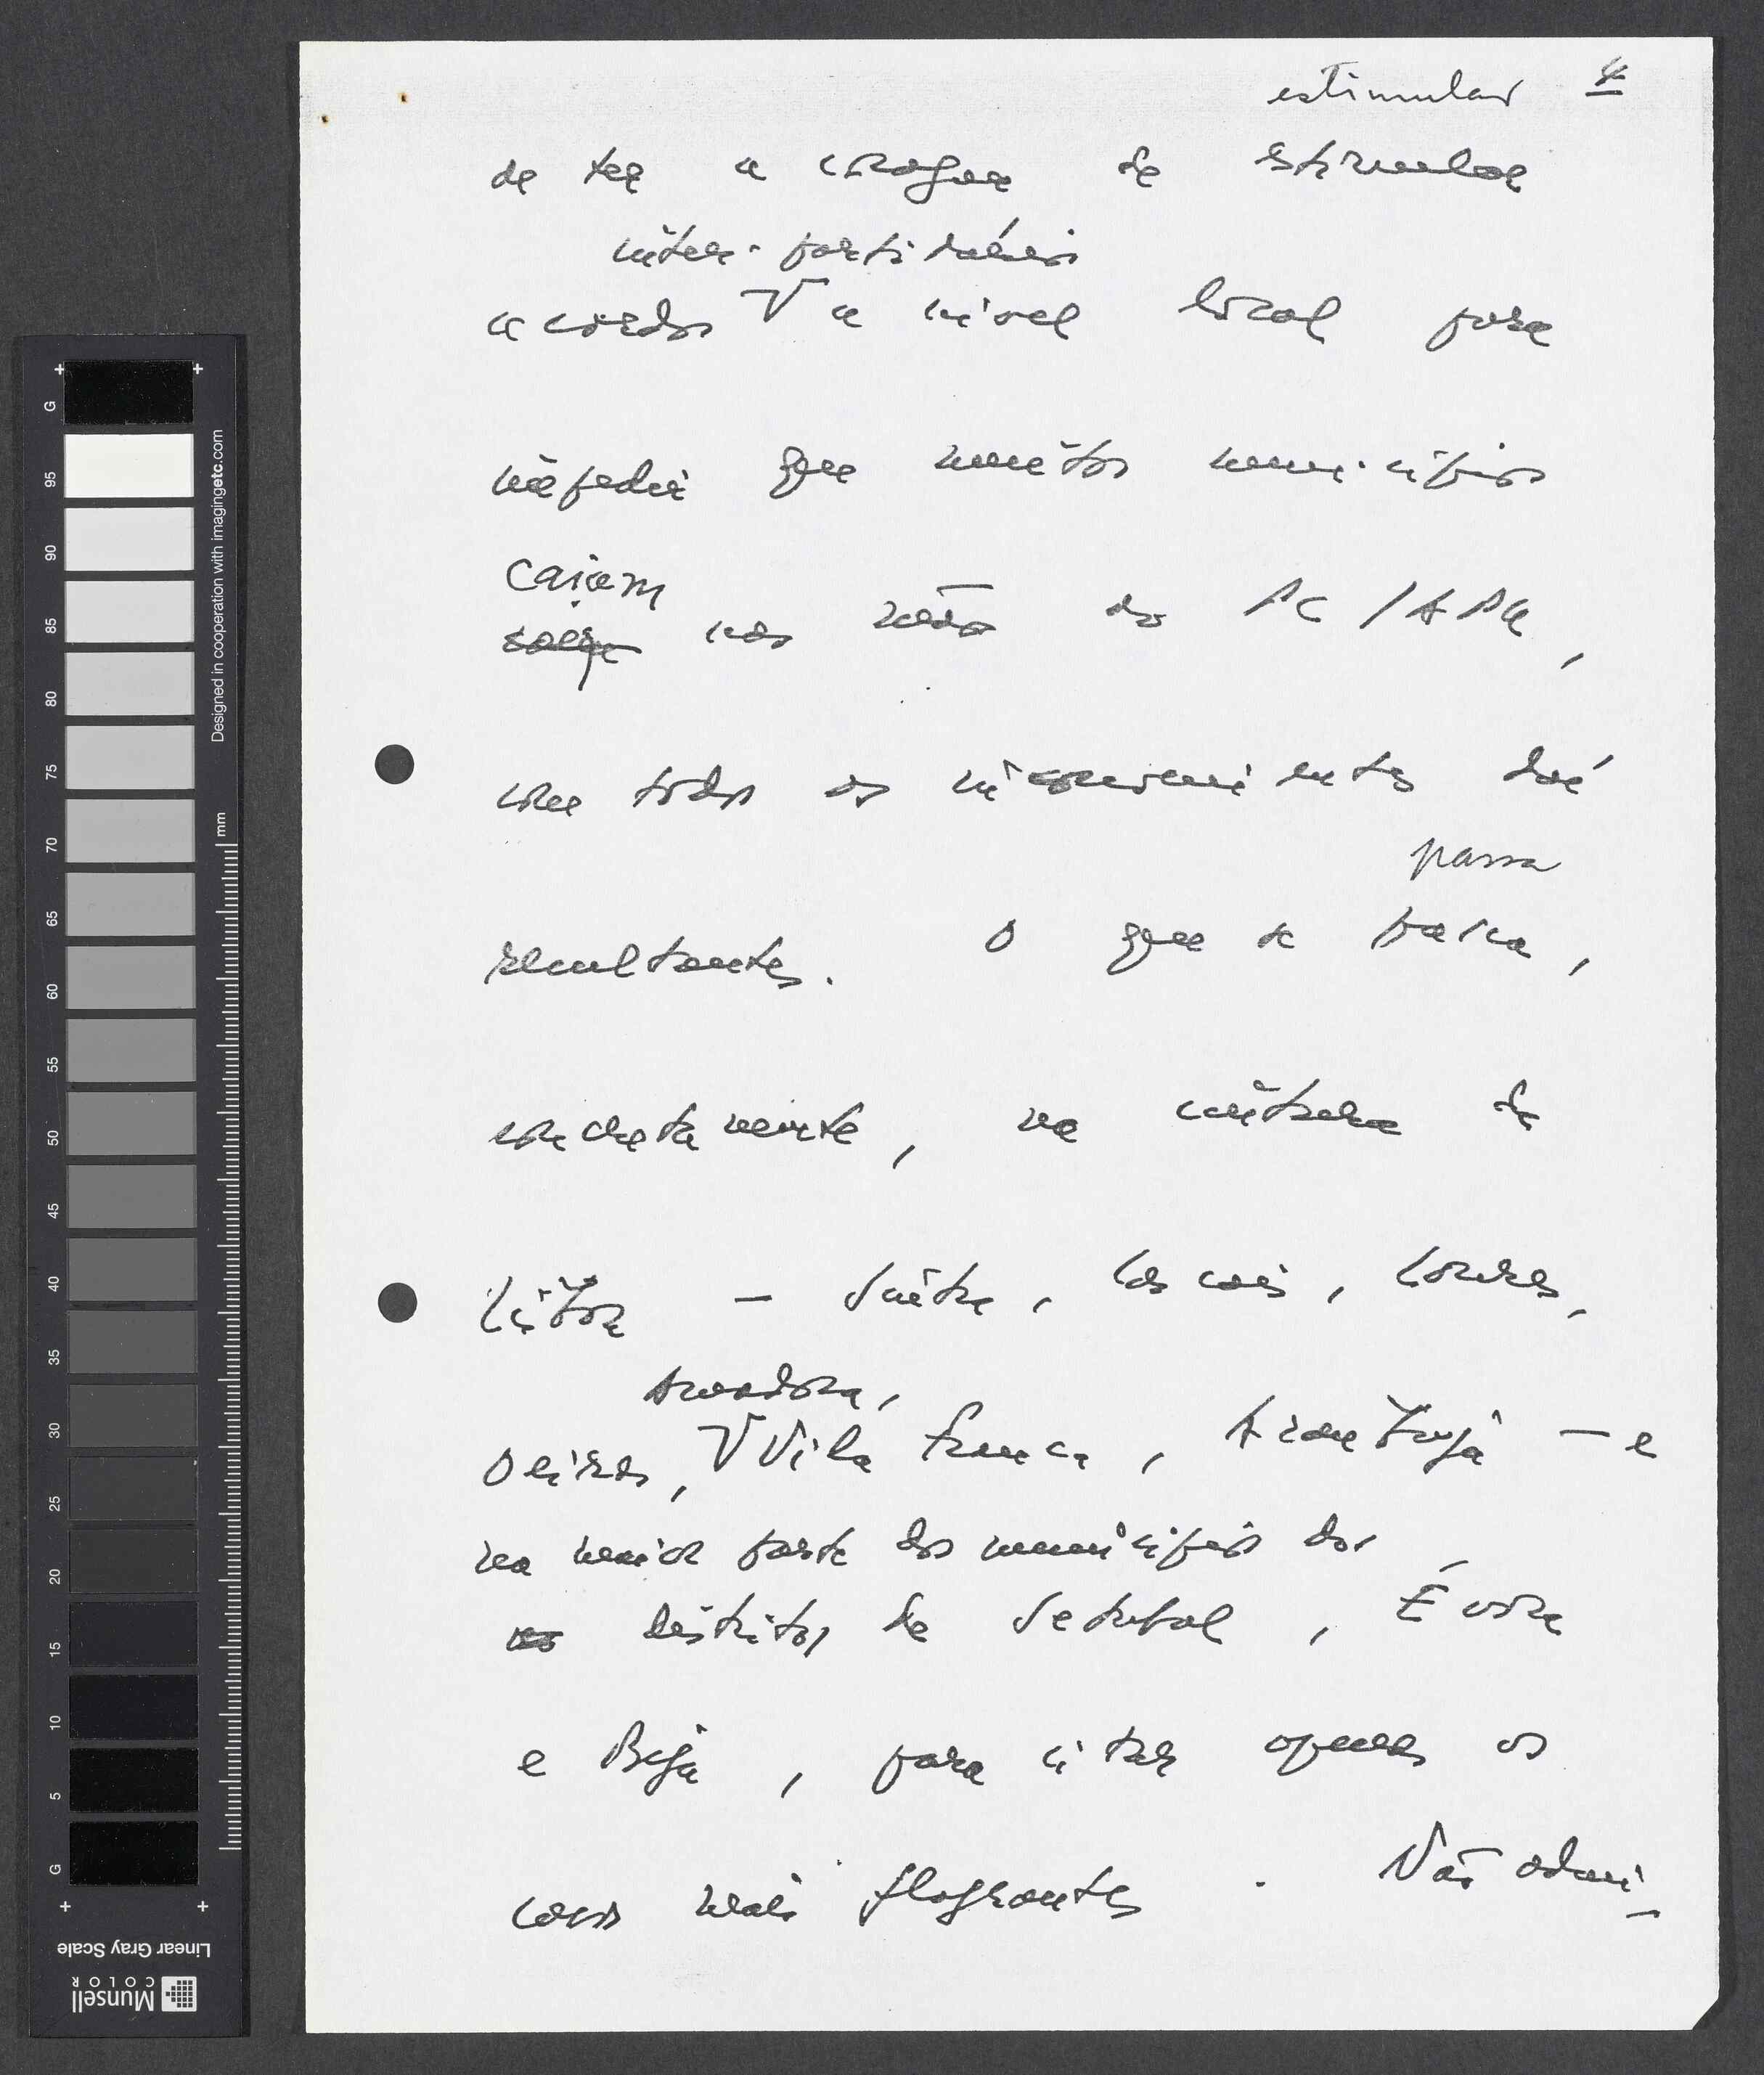 4
estimular
de ter a coragem de estimular
inter-partidários
acordos V a nível local para
impedir que muitos municípios
caiam
nas mãos do PC/APU,
com todos os inconvenientes daí
passa
resultantes. O que se passa,
concretamente, na cintura de
Lisboa – Sintra, Cascais, Loures,
Amadora,
Oeiras, V Vila Franca, Azambuja – e
na maior parte dos municípios dos
distritos de Setubal, Évora
e Beja, para citar apenas os
casos mais flagrantes. Não admi-
Designed in cooperation with imagingetc.com
mm
G
95
90
85
80
75
70
65
60
55
50
45
40
35
30
25
20
15
10
5
G
Linear Gray Scale
Munsell
COLOR